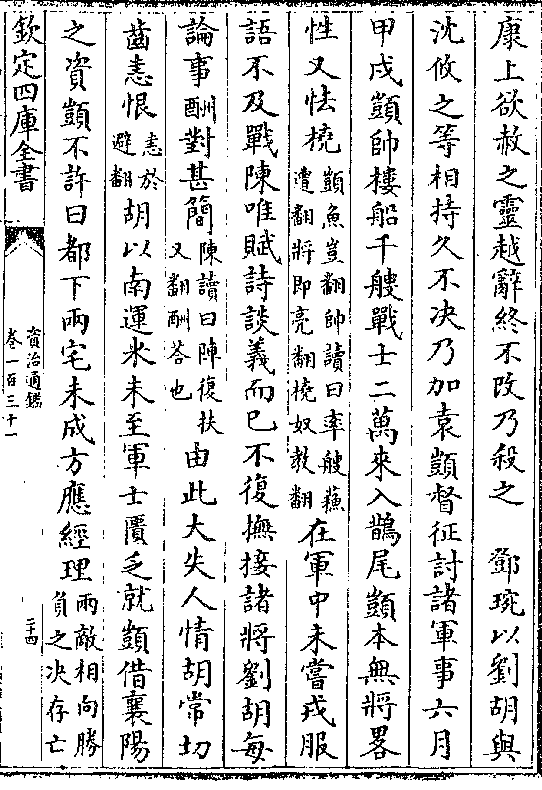 康上欲赦之靈越辭終不改乃殺之　鄧琬以劉胡與
沈攸之等相持久不决乃加袁顗督征討諸軍事六月
甲戌顗帥樓船千艘戰士二萬來入鵲尾顗本無將畧
性又怯橈顗魚豈翻帥讀曰率艘蘇遭翻將即亮翻橈奴教翻在軍中未嘗戎服
語不及戰陳唯賦詩談義而已不復撫接諸將劉胡每
論事酬對甚簡陳讀曰陣復扶又翻酬荅也由此大失人情胡常切
齒恚恨恚於避翻胡以南運米未至軍士匱乏就顗借襄陽
之資顗不許曰都下兩宅未成方應經理兩敵相向勝負之决存亡
欽定四庫全書
資治通鑑
卷一百三十一
二十四